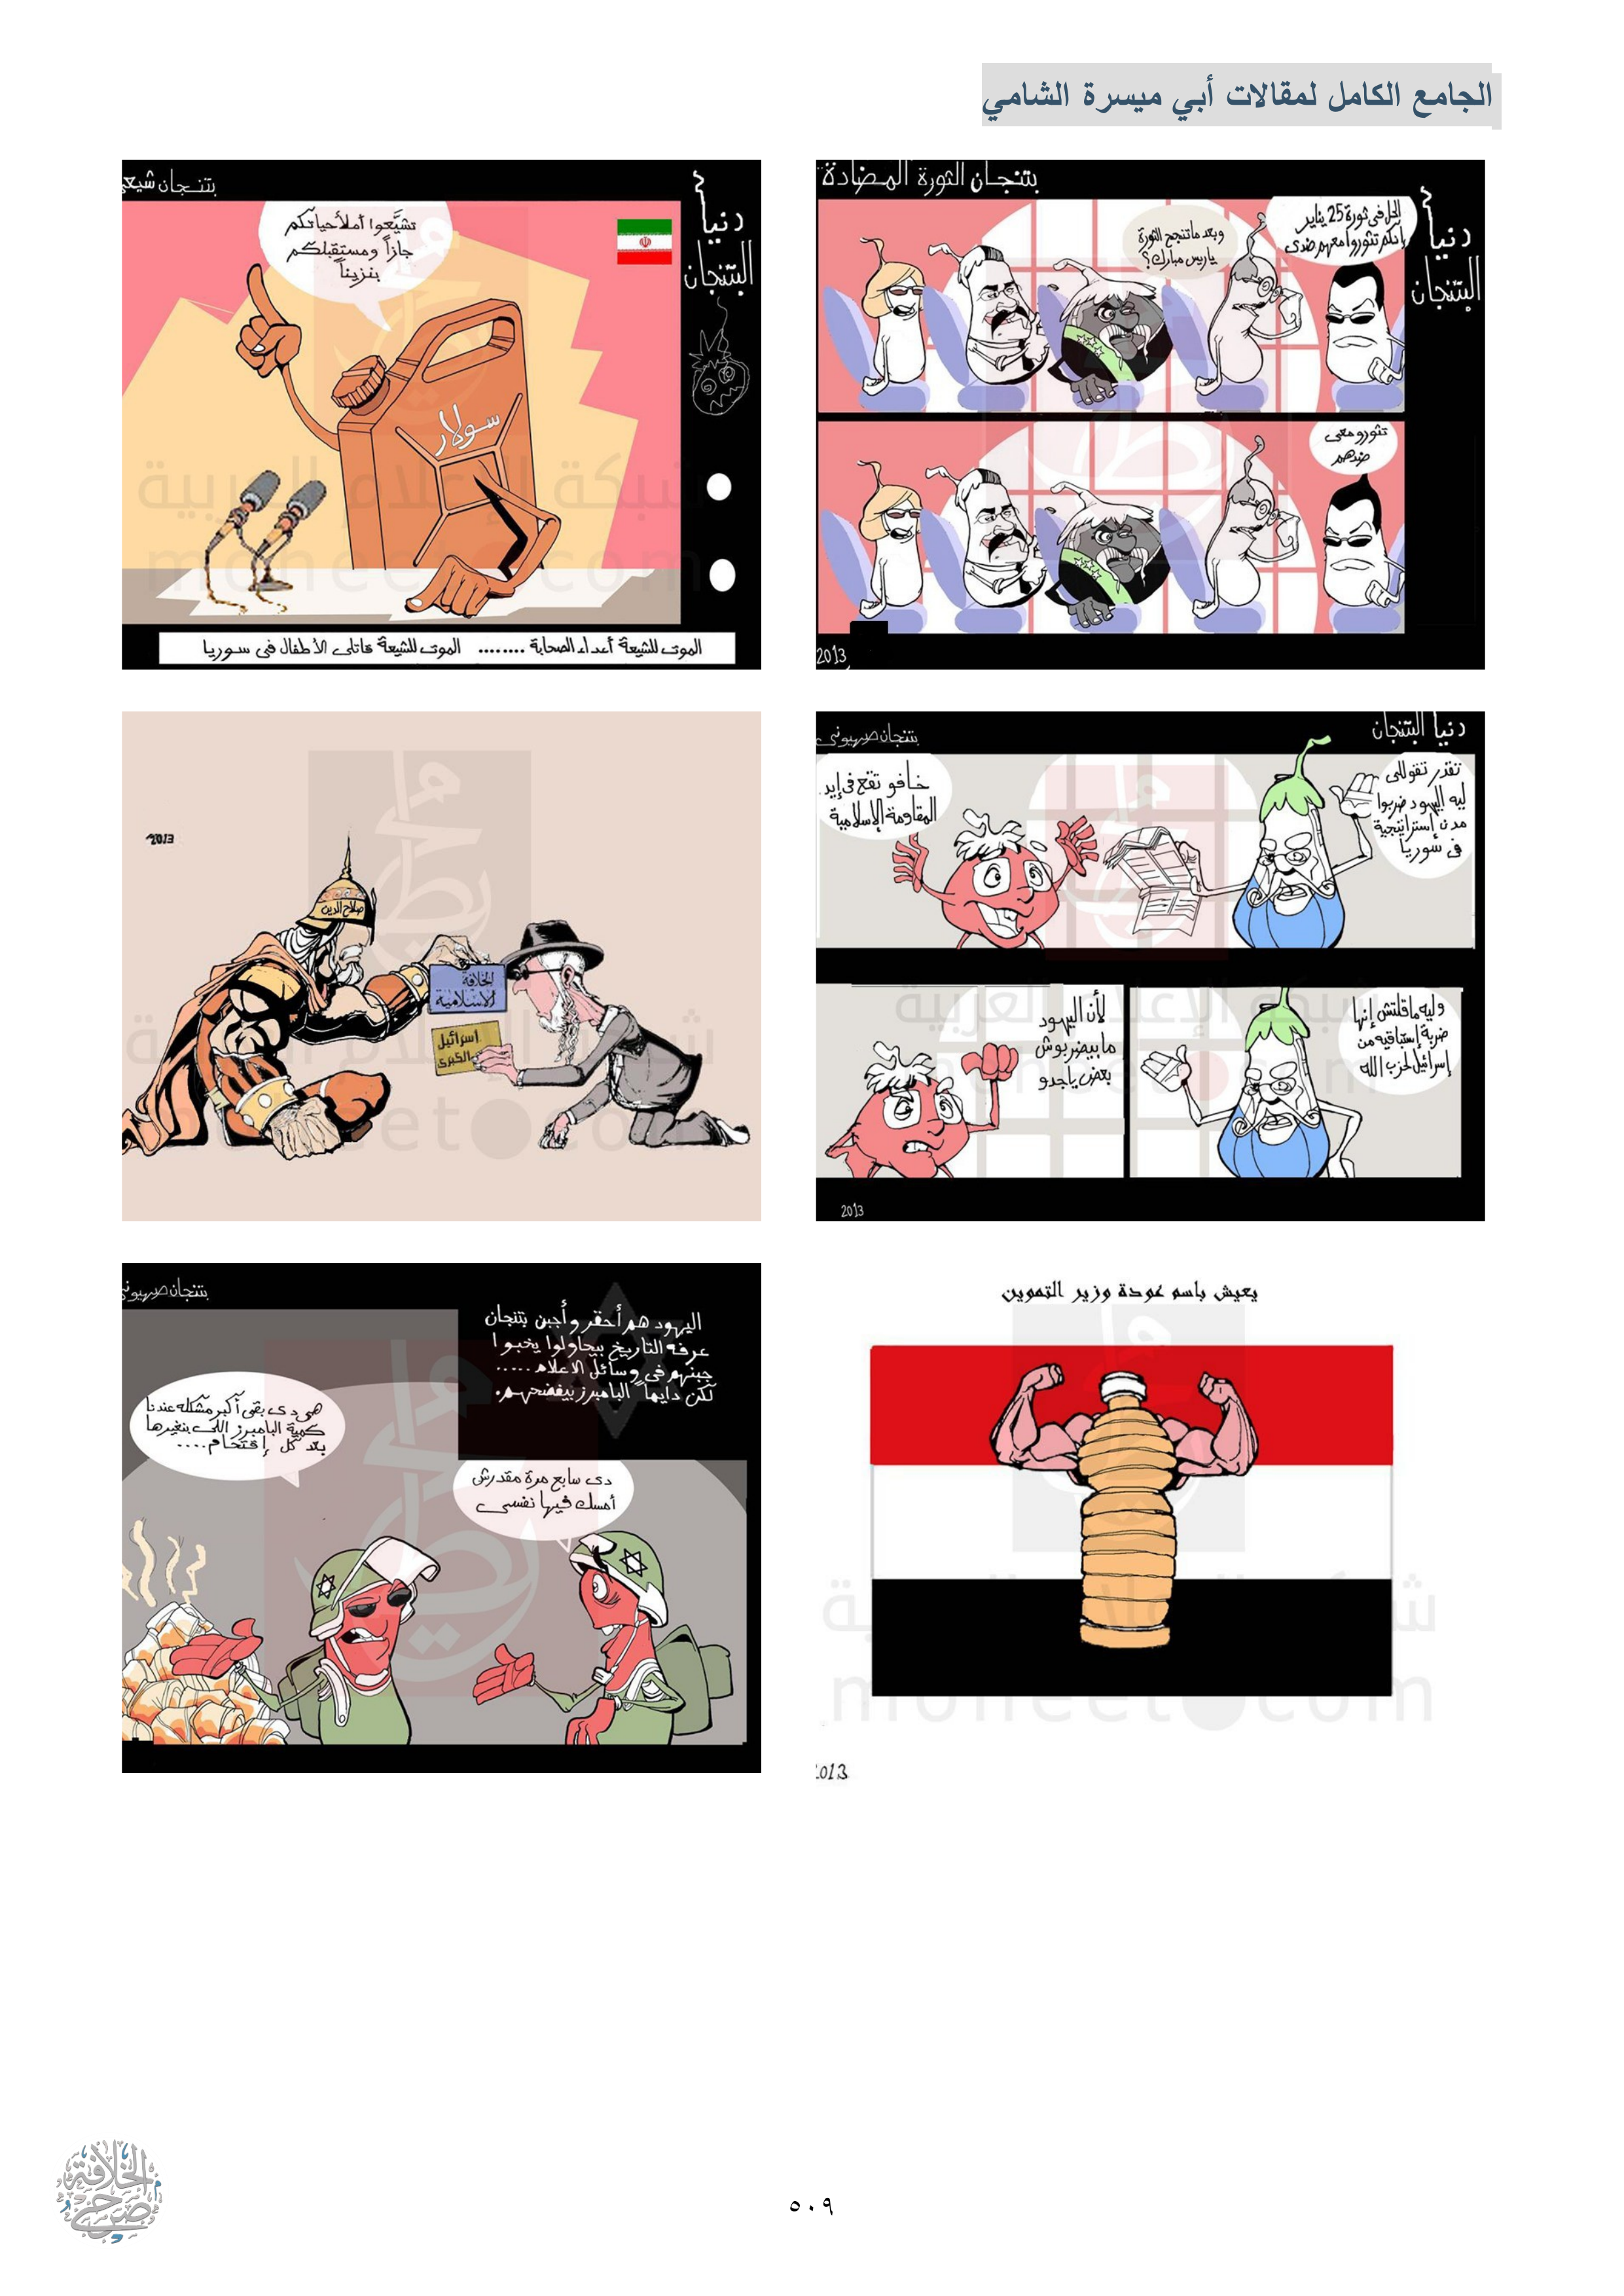 الجامع الكامل لمقالات أبي ميسرة الشامي
بتنجان الثورة المضادة
دنيا
البتنجان
الحل فى ثورة 25 يناير
إنكم تثوروا معهم ضدى
وبعد ماتنجح الثورة
ياريس مبارك؟
تثورو معى
ضدهم
2013
بتنجان شيعى
دنيا
البتنجان
تشيَّعوا أملأ حياتكم
جازاً ومستقبلكم
بنزيناً
سولار
الموت للشيعة أعداء الصحابة ........ الموت للشيعة قاتلى الأطفال فى سوريا
دنيا البتنجان
بتنجان صهيونى
تقدر تقوللى
ليه اليهود ضربوا
مدن إستراتيجية
فى سوريا
خافو تقع فى إيد
المقاومة الإسلامية
وليه ماقلتش إنها
ضربة إستباقيه من
إسرائيل لحزب الله
لأن اليهود
مابيضربوش
بعض ياجدو
2013
2013
صلاح الدين
الخلافة
الاسلامية
اسرائيل
الكبرى
يعيش باسم عودة وزير التموين
2013
بتنجان صهيونى
اليهود هم أحقر وأجبن بتنجان
عرفه التاريخ بيحاولوا يخبوا
جبنهم فى وسائل الاعلام .....
لكن دايماً البامبرز بيفضحهم.
هى دى بقى أكبر مشكله عندنا
كمية البامبرز اللى بنغيرها
بعد كل إقتحام ....
دى سابع مرة مقدرش
أمسك فيها نفسى
شبكة الإعلام العربية
moheet.com
صرح الخلافة
٥٠٩